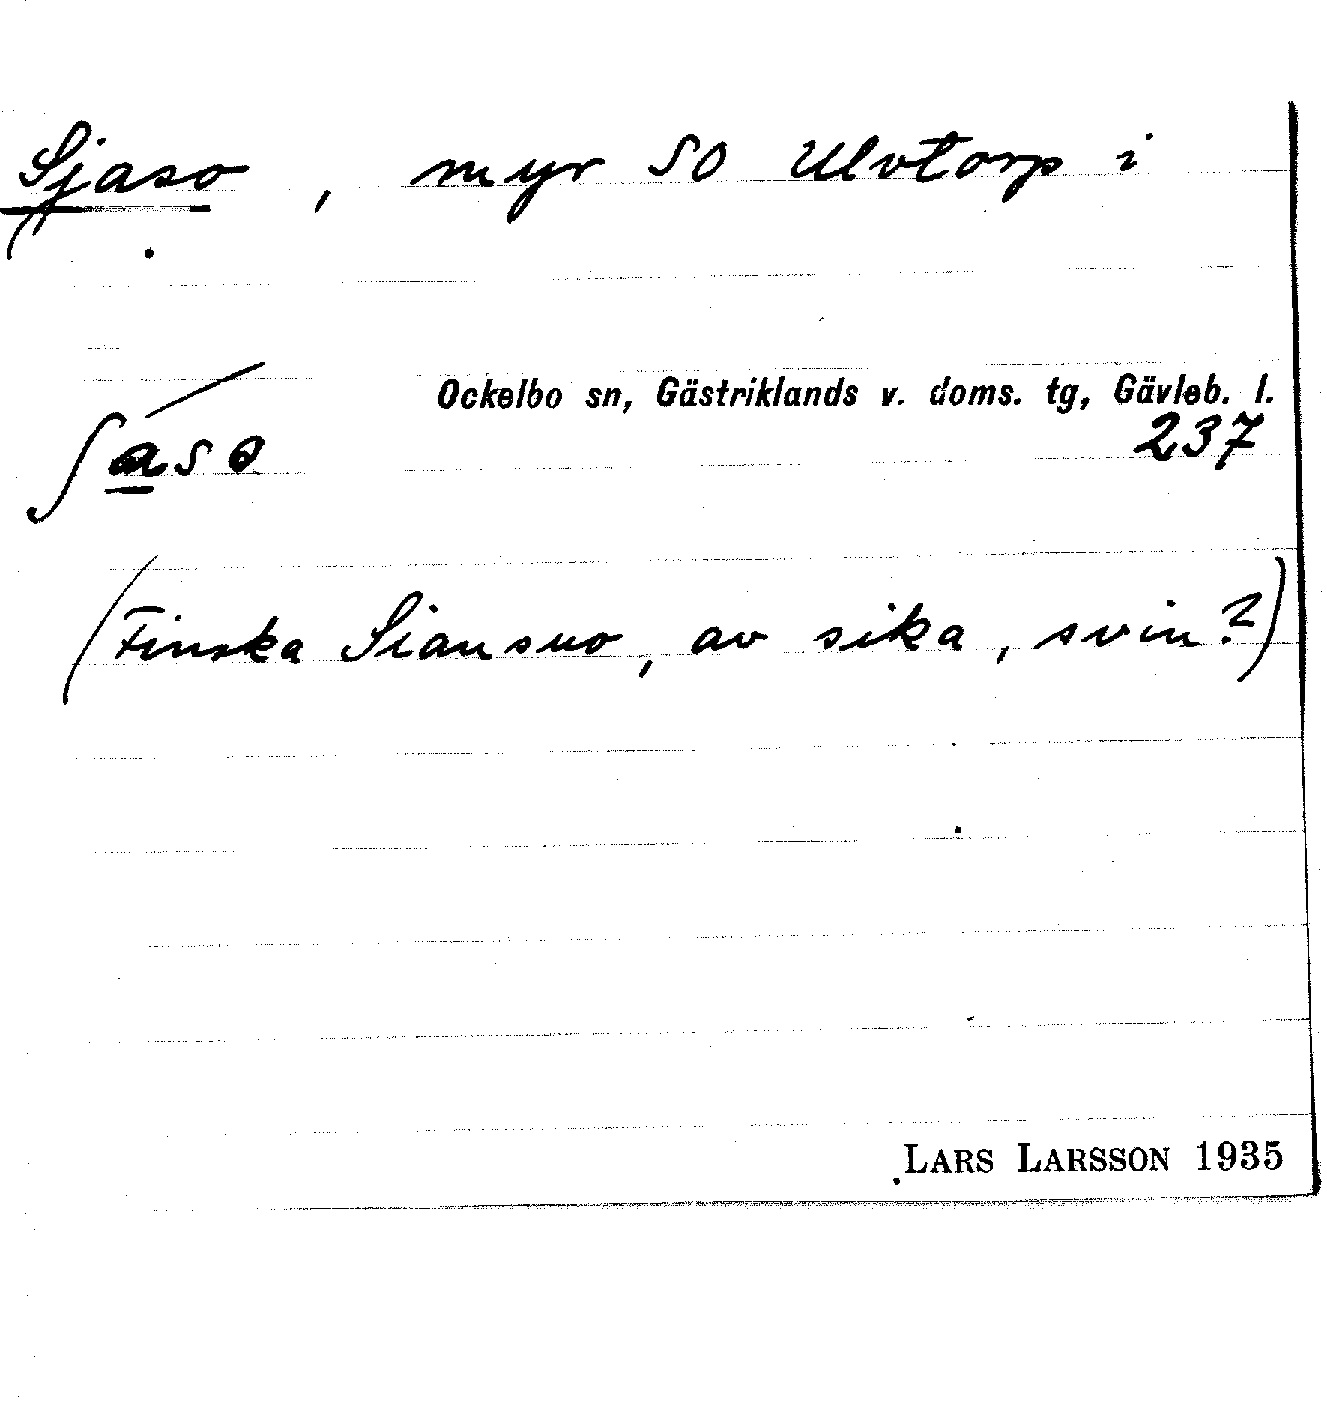 Sjaso, myr SO Ulvtorp i
Ockelbo sn, Gästriklands v. doms. tg, Gävleb. l.
237
ʃaso
(Finska Siansuo, av sika, svin?)
LARS LARSSON 1935